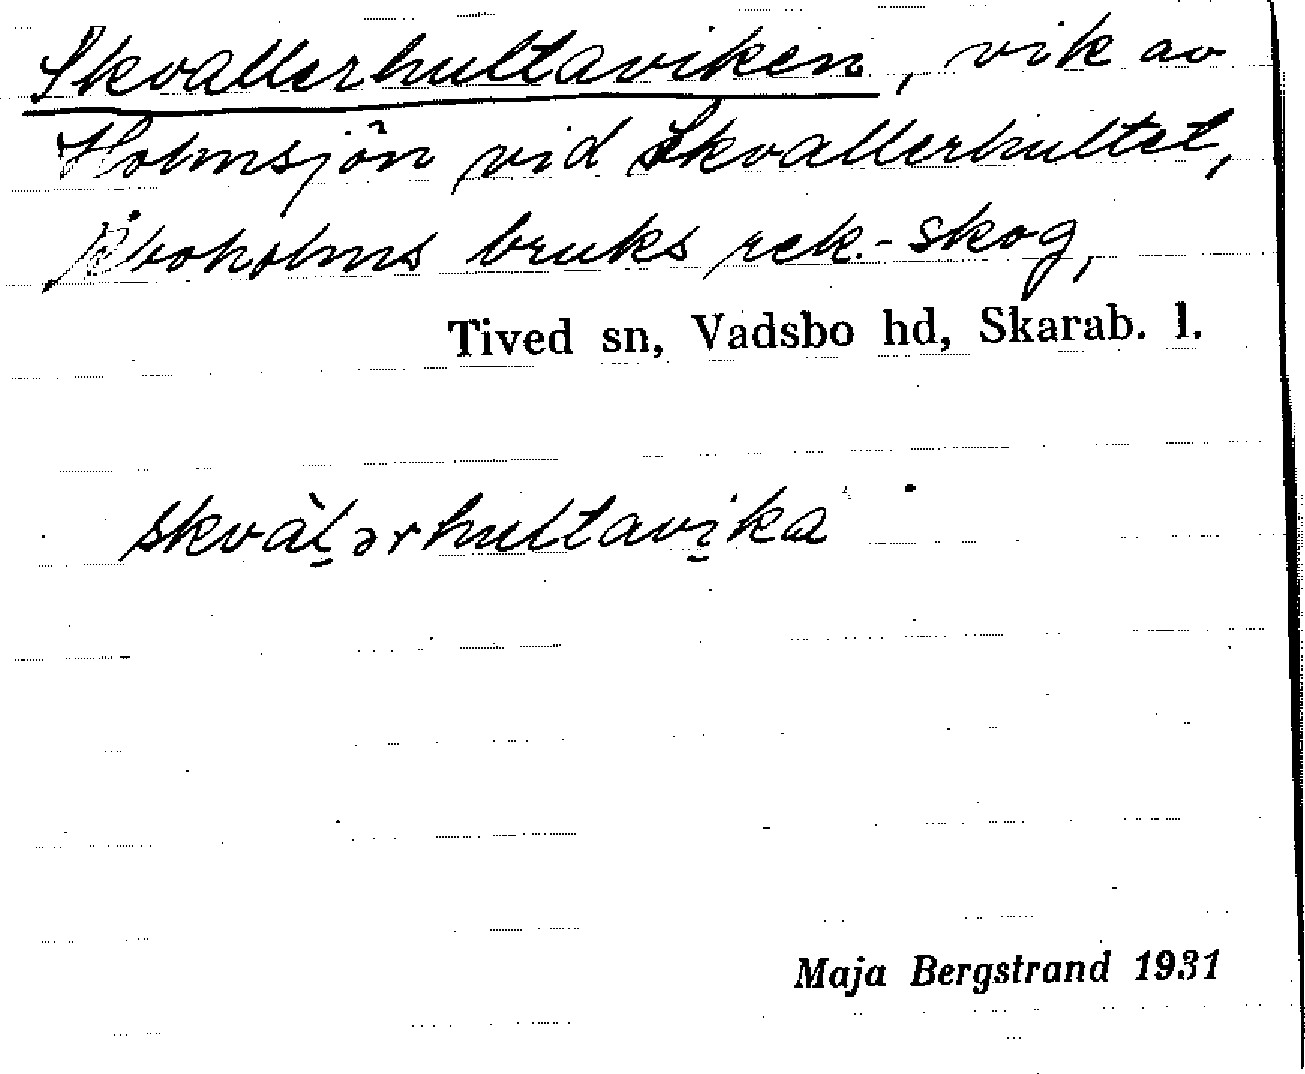 Skvallerhultaviken, vik av
Holmsjön vid Skvallerhultet,
Åboholms bruks rek.-skog,
Tived sn, Vadsbo hd, Skarab. l.
skvàl̠ərhultavi̠ka
Maja Bergstrand 1931